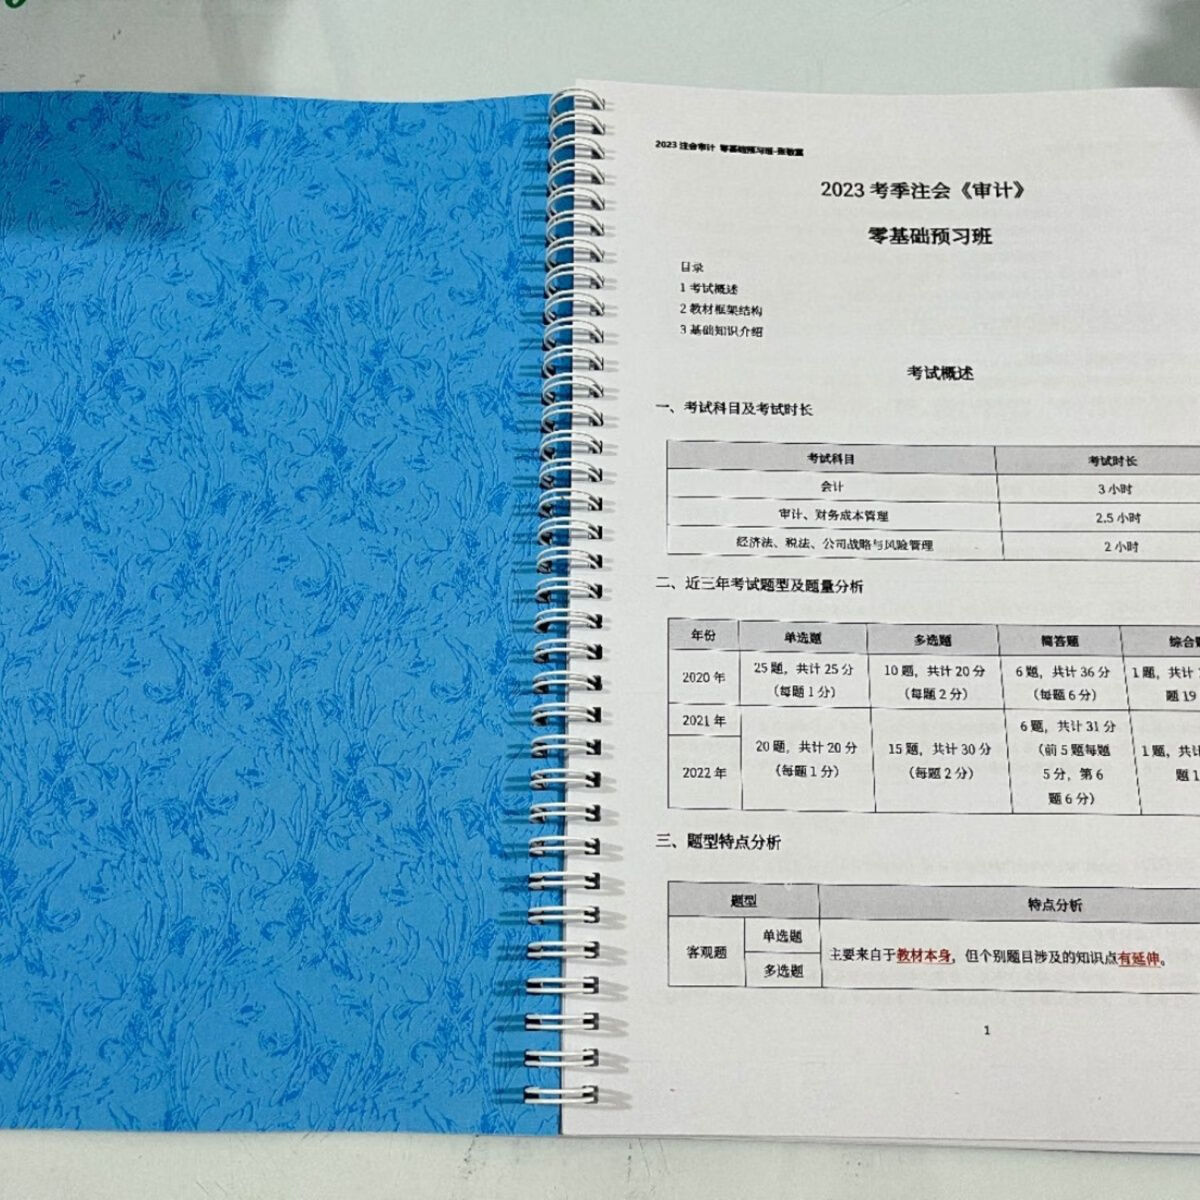 2023 注会审计 零基础预习班-张敬富
2023 考季注会《审计》
零基础预习班
目录
1 考试概述
2 教材框架结构
3 基础知识介绍
考试概述
一、考试科目及考试时长
考试科目 考试时长
会计 3 小时
审计、财务成本管理 2.5 小时
经济法、税法、公司战略与风险管理 2 小时
二、近三年考试题型及题量分析
年份 单选题 多选题 简答题 综合
2020 年 25 题，共计 25 分 10 题，共计 20 分 6 题，共计 36 分 1 题，共计
（每题 1 分） （每题 2 分） （每题 6 分） 题 19
2021 年 6 题，共计 31 分
20 题，共计 20 分 15 题，共计 30 分 （前 5 题每题 1 题，共计
2022 年 （每题 1 分） （每题 2 分） 5 分，第 6 题 1
题 6 分）
三、题型特点分析
题型 特点分析
客观题 单选题 主要来自于教材本身，但个别题目涉及的知识点有延伸。
多选题
1